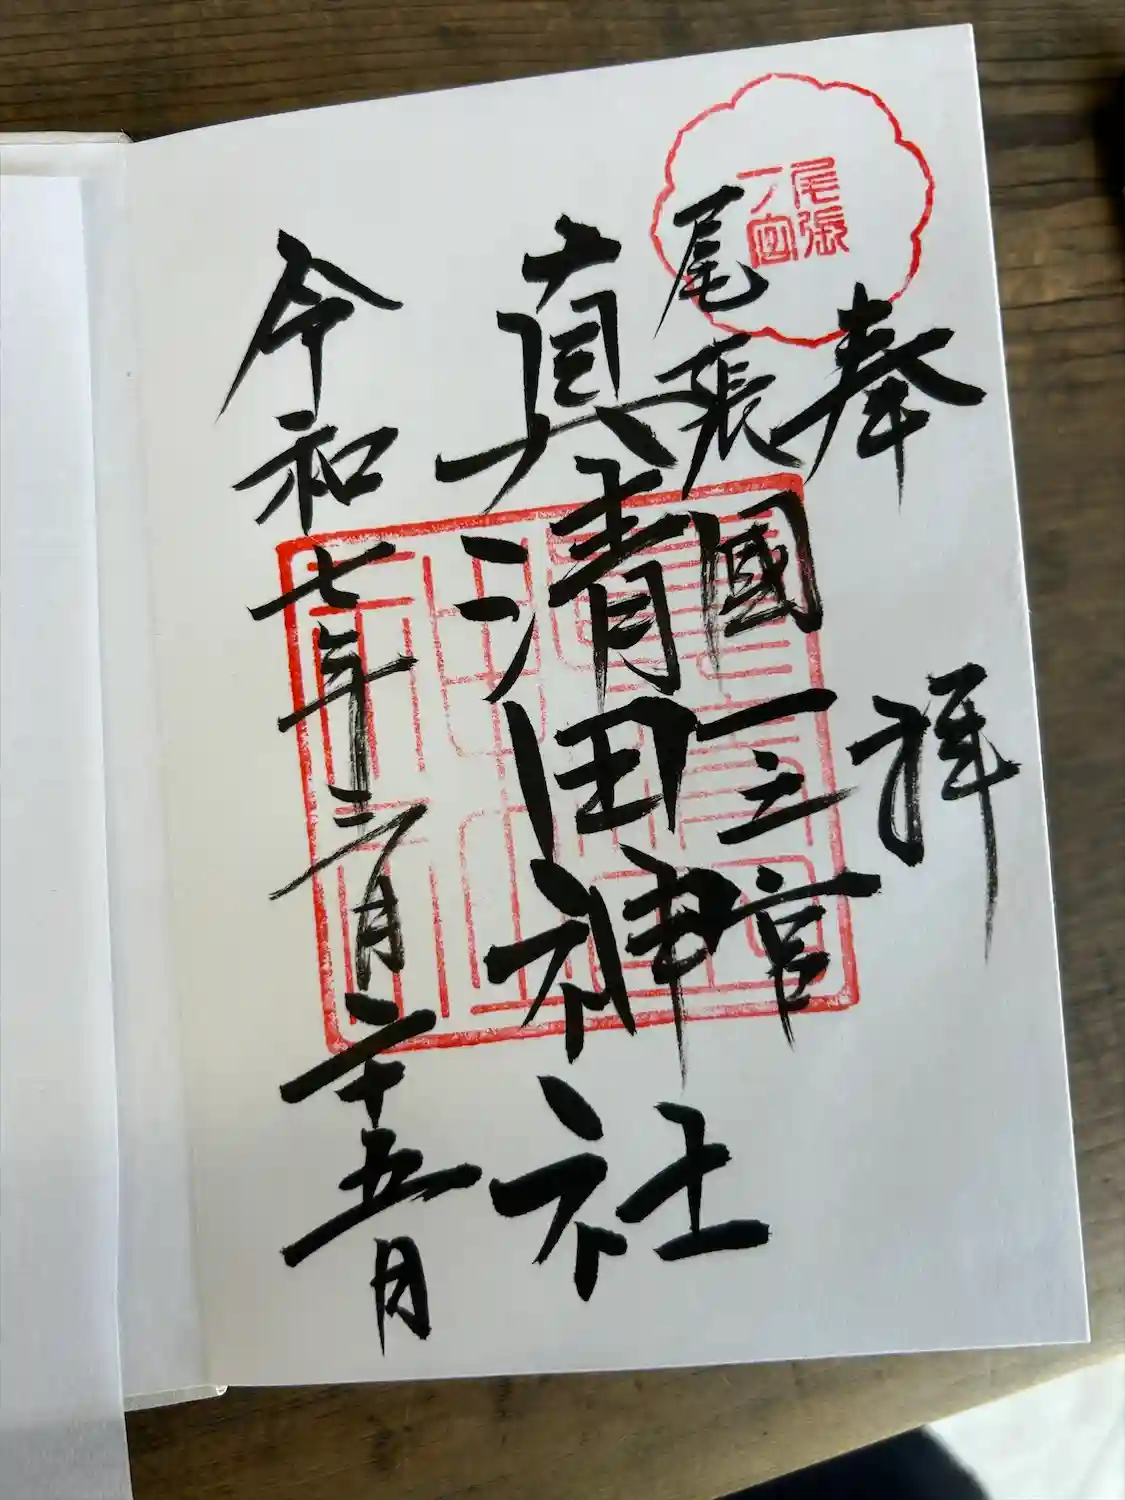 奉拝
尾張
一宮
尾張國一之宮
真清田神社
令和七年二月二十五日